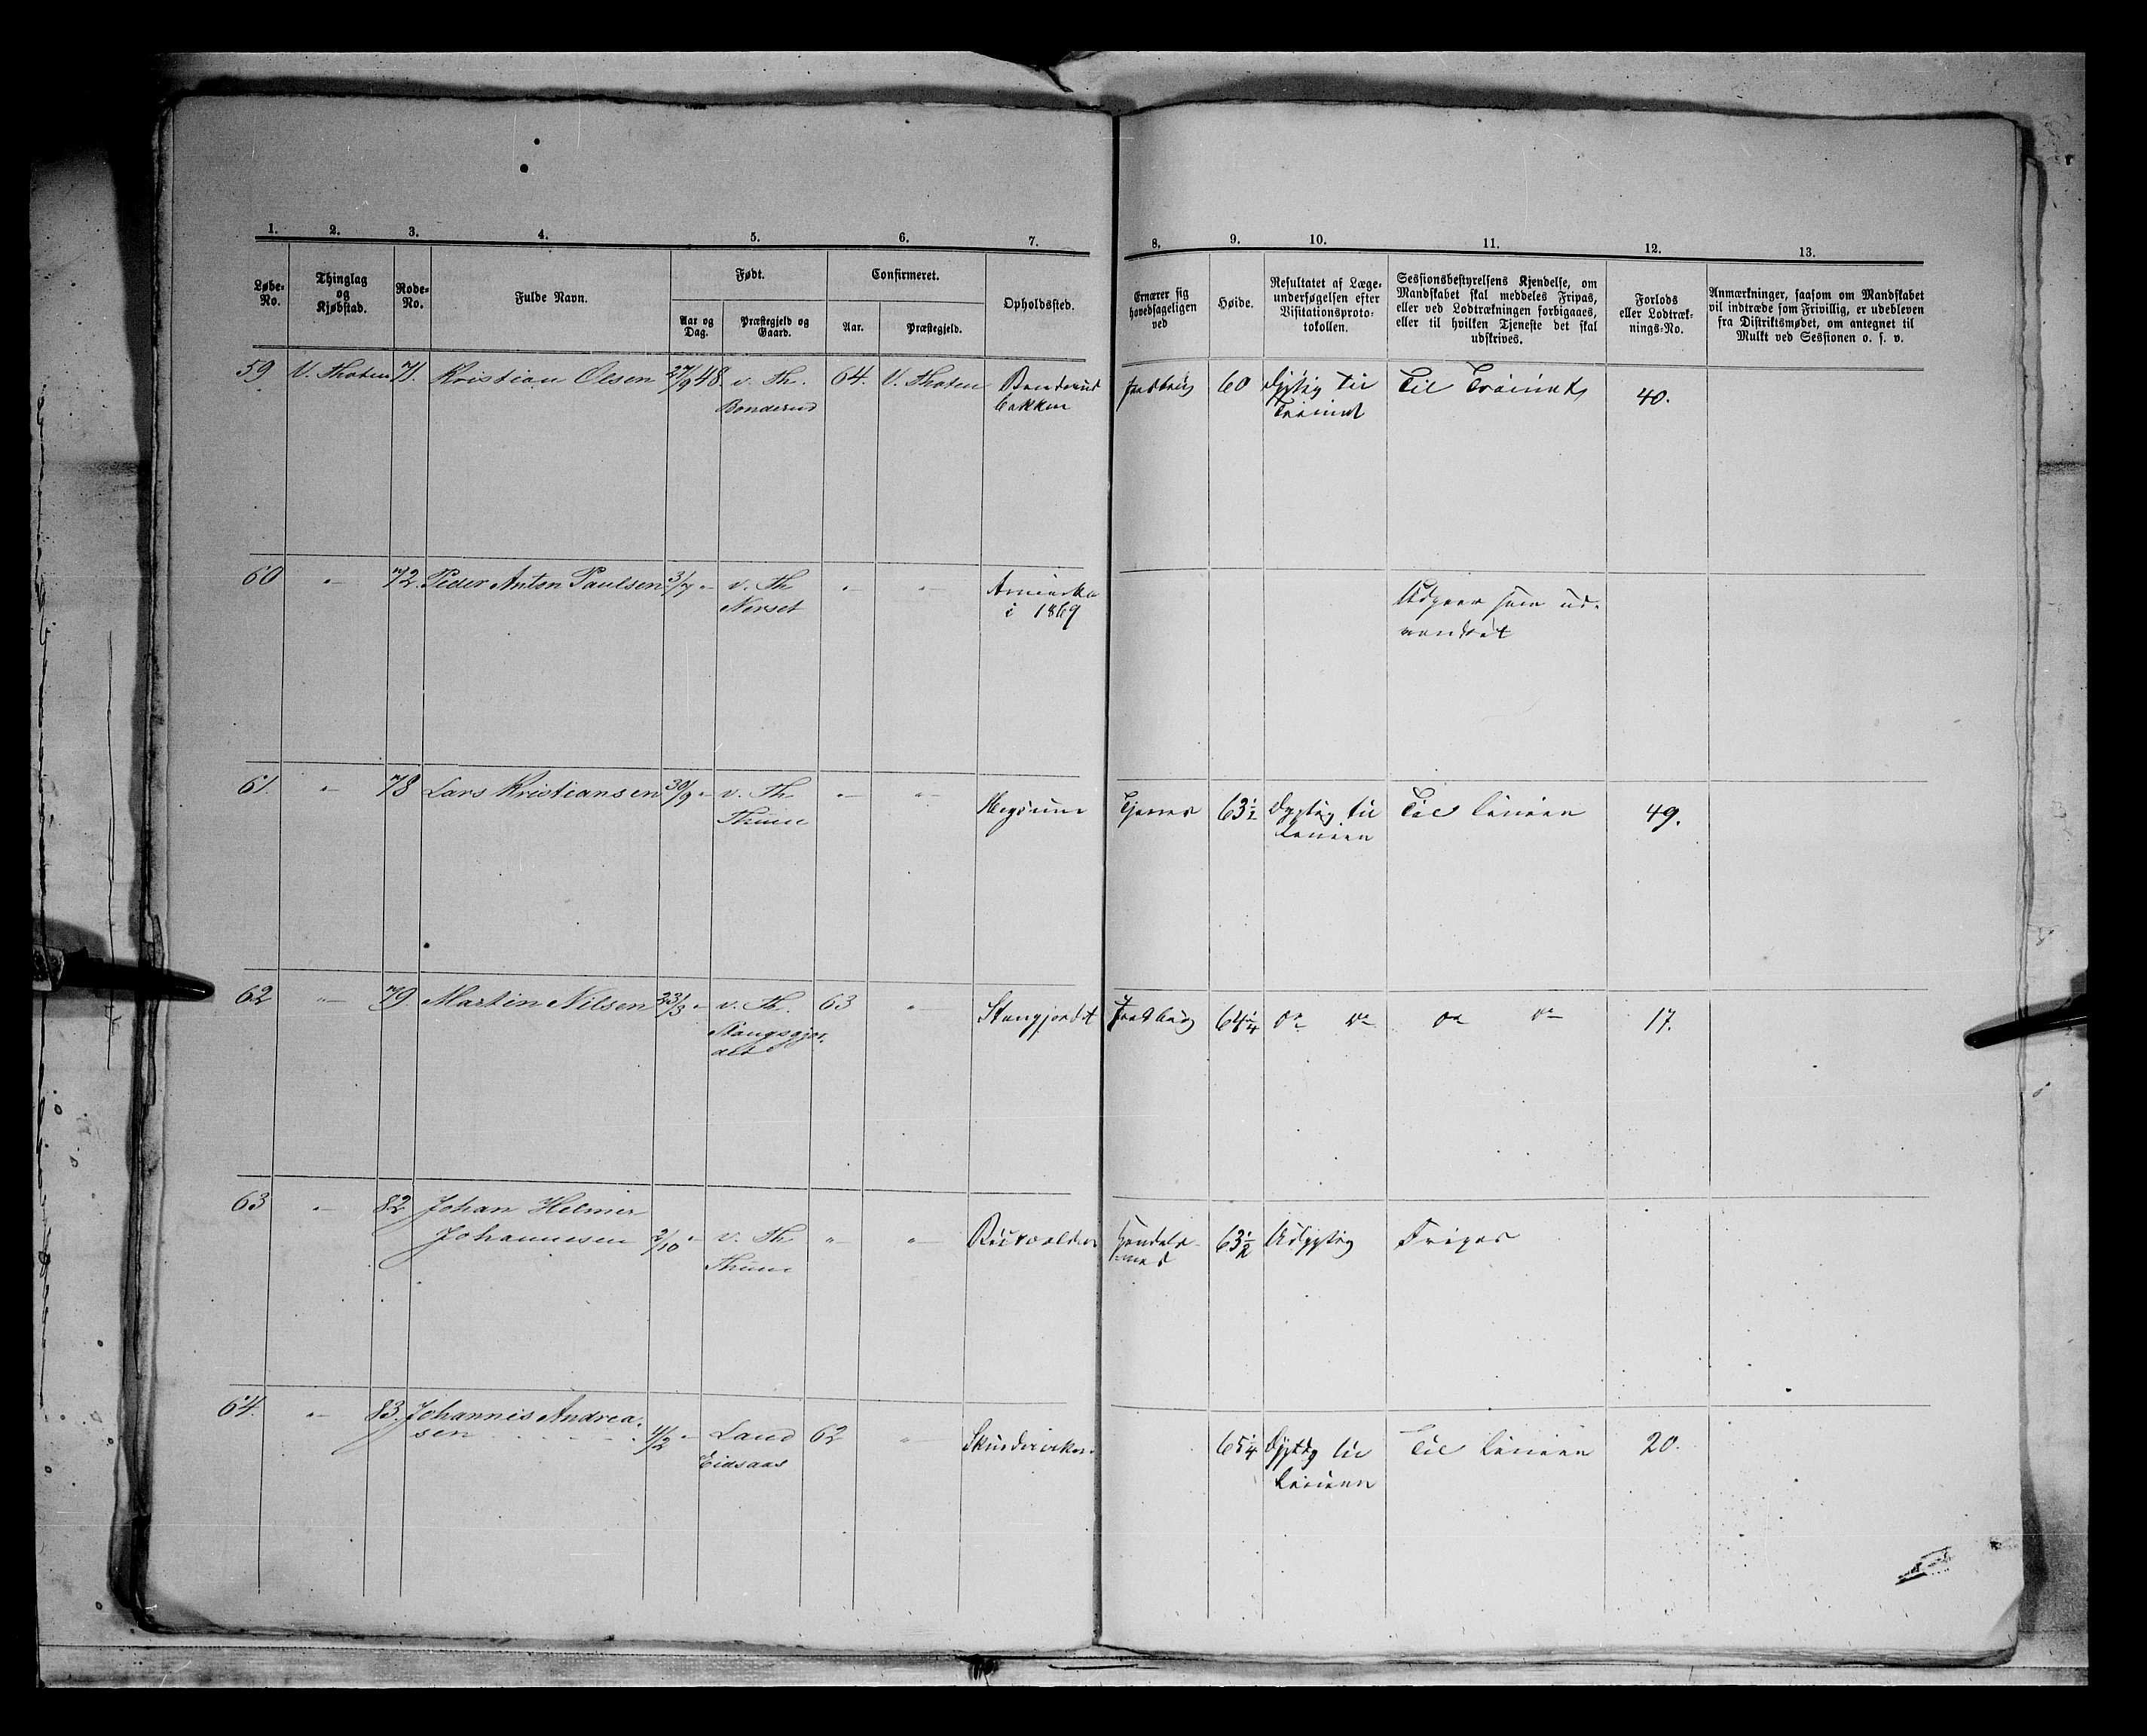 1. 2. 3. 4. 5. 6. 7. 8. 9. 10. 11. 12. 13.
Løbe-No.
Thinglag og Kjøbstad.
Rode-No.
Fulde Navn.
Født.
Aar og Dag.
Præstegjeld og Gaard.
Confirmeret.
Aar.
Præstegjeld.
Opholdssted.
Ernærer sig hovedsageligen ved
Høide.
Resultatet af Læge-
undersøgelsen efter
Visitationsproto-
tokollen.
Sessionsbestyrelsens Kjendelse, om
Mandskabet skal meddeles Fripas,
eller ved Lodtrækningen forbigaaes,
eller til hvilken Tjeneste det skal
udskrives.
Forlods
eller Lodtræk-
nings-No.
Anmærkninger, saasom om Mandskabet
vil indtræde som Frivillig, er udebleven
fra Distriktsmødet, om antegnet til
Mulkt ved Sessionen o. s. v.
59 V. Thoten 71. Kristian Olsen 27/9 48. v. Th. 64. V. Thoten Bonderud Jordbrug 60 Dygtig til Til Trainet 40.
Bonderud bakken Trainet
60 " 72. Peder Anton Paulsen 3/7 " v. Th. " " Amerika
Nerset i 1869
Udgaar som ud-
vandret
61. " 78 Lars Kristiansen 30/9 " v. Th. " " Tjener 63½ Dygtig til Til Linien 49.
Thune Linien
62 " 79. Martin Nilsen 23/3 " v. Th. 63 " Stangjordet Jordbrug 64¼ do do do do 17.
Stangsgjor-
det
63 " 82 Johan Helmer
Johannesen 2/10 " v. Th. " " Handels- 63½ Udygtig Fripas
Thune mand
64. " 83. Johannes Andrea-
sen 4/2 " Land 62 " 65¼ Dygtig til Til Linien 20.
Eidsaas Linien